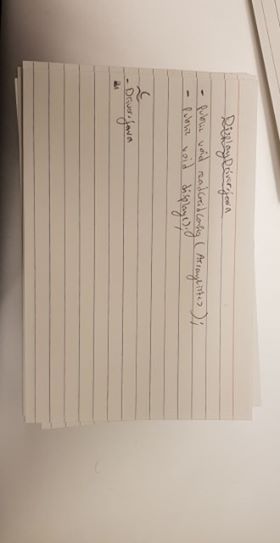 DisplayDriver.java
- public void (ArrayList<>);
- public void display();
- Driver.java